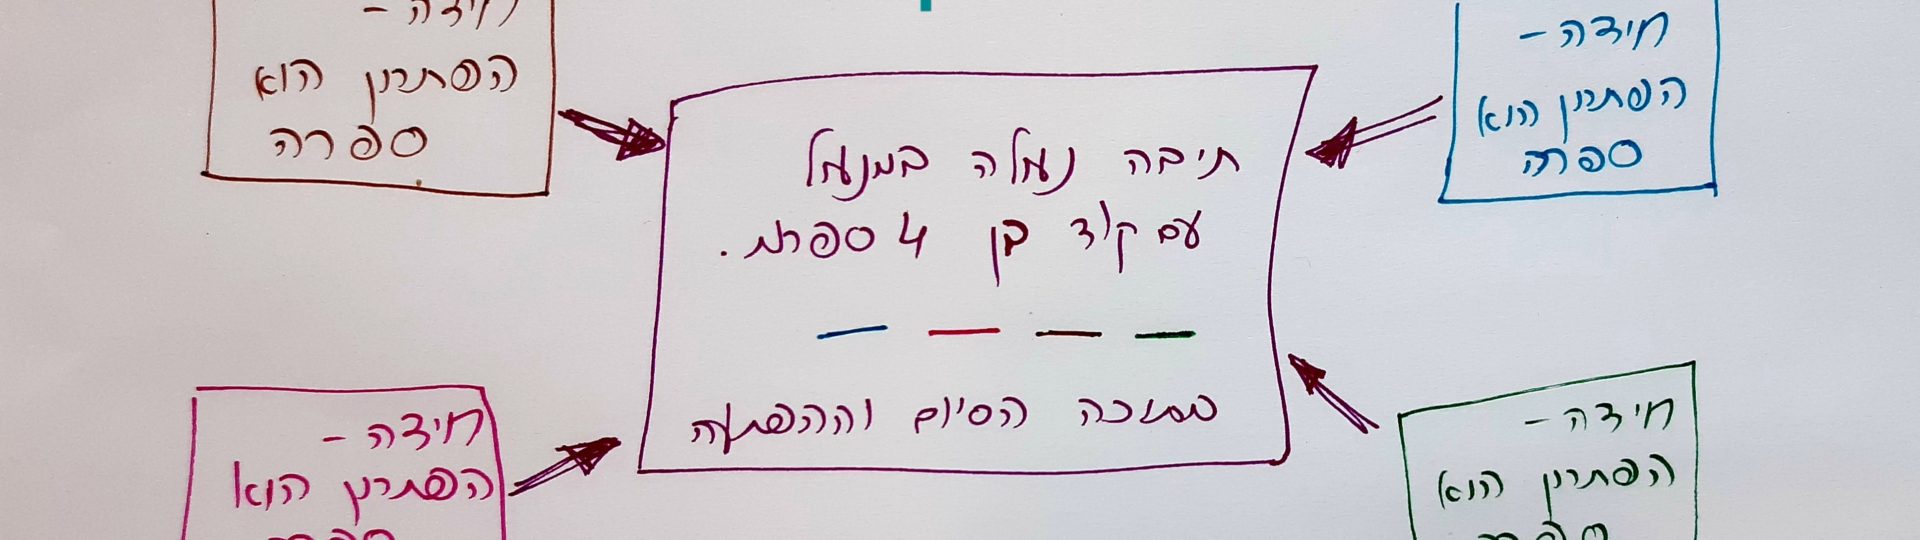 חידה -
הפתרון הוא
ספרה
חידה -
הפתרון הוא
ספרה
תיבה נעולה במנעול
עם קוד בן 4 ספרות.
הסיום וההפתעה
חידה -
הפתרון הוא
ספרה
חידה -
הפתרון הוא
ספרה